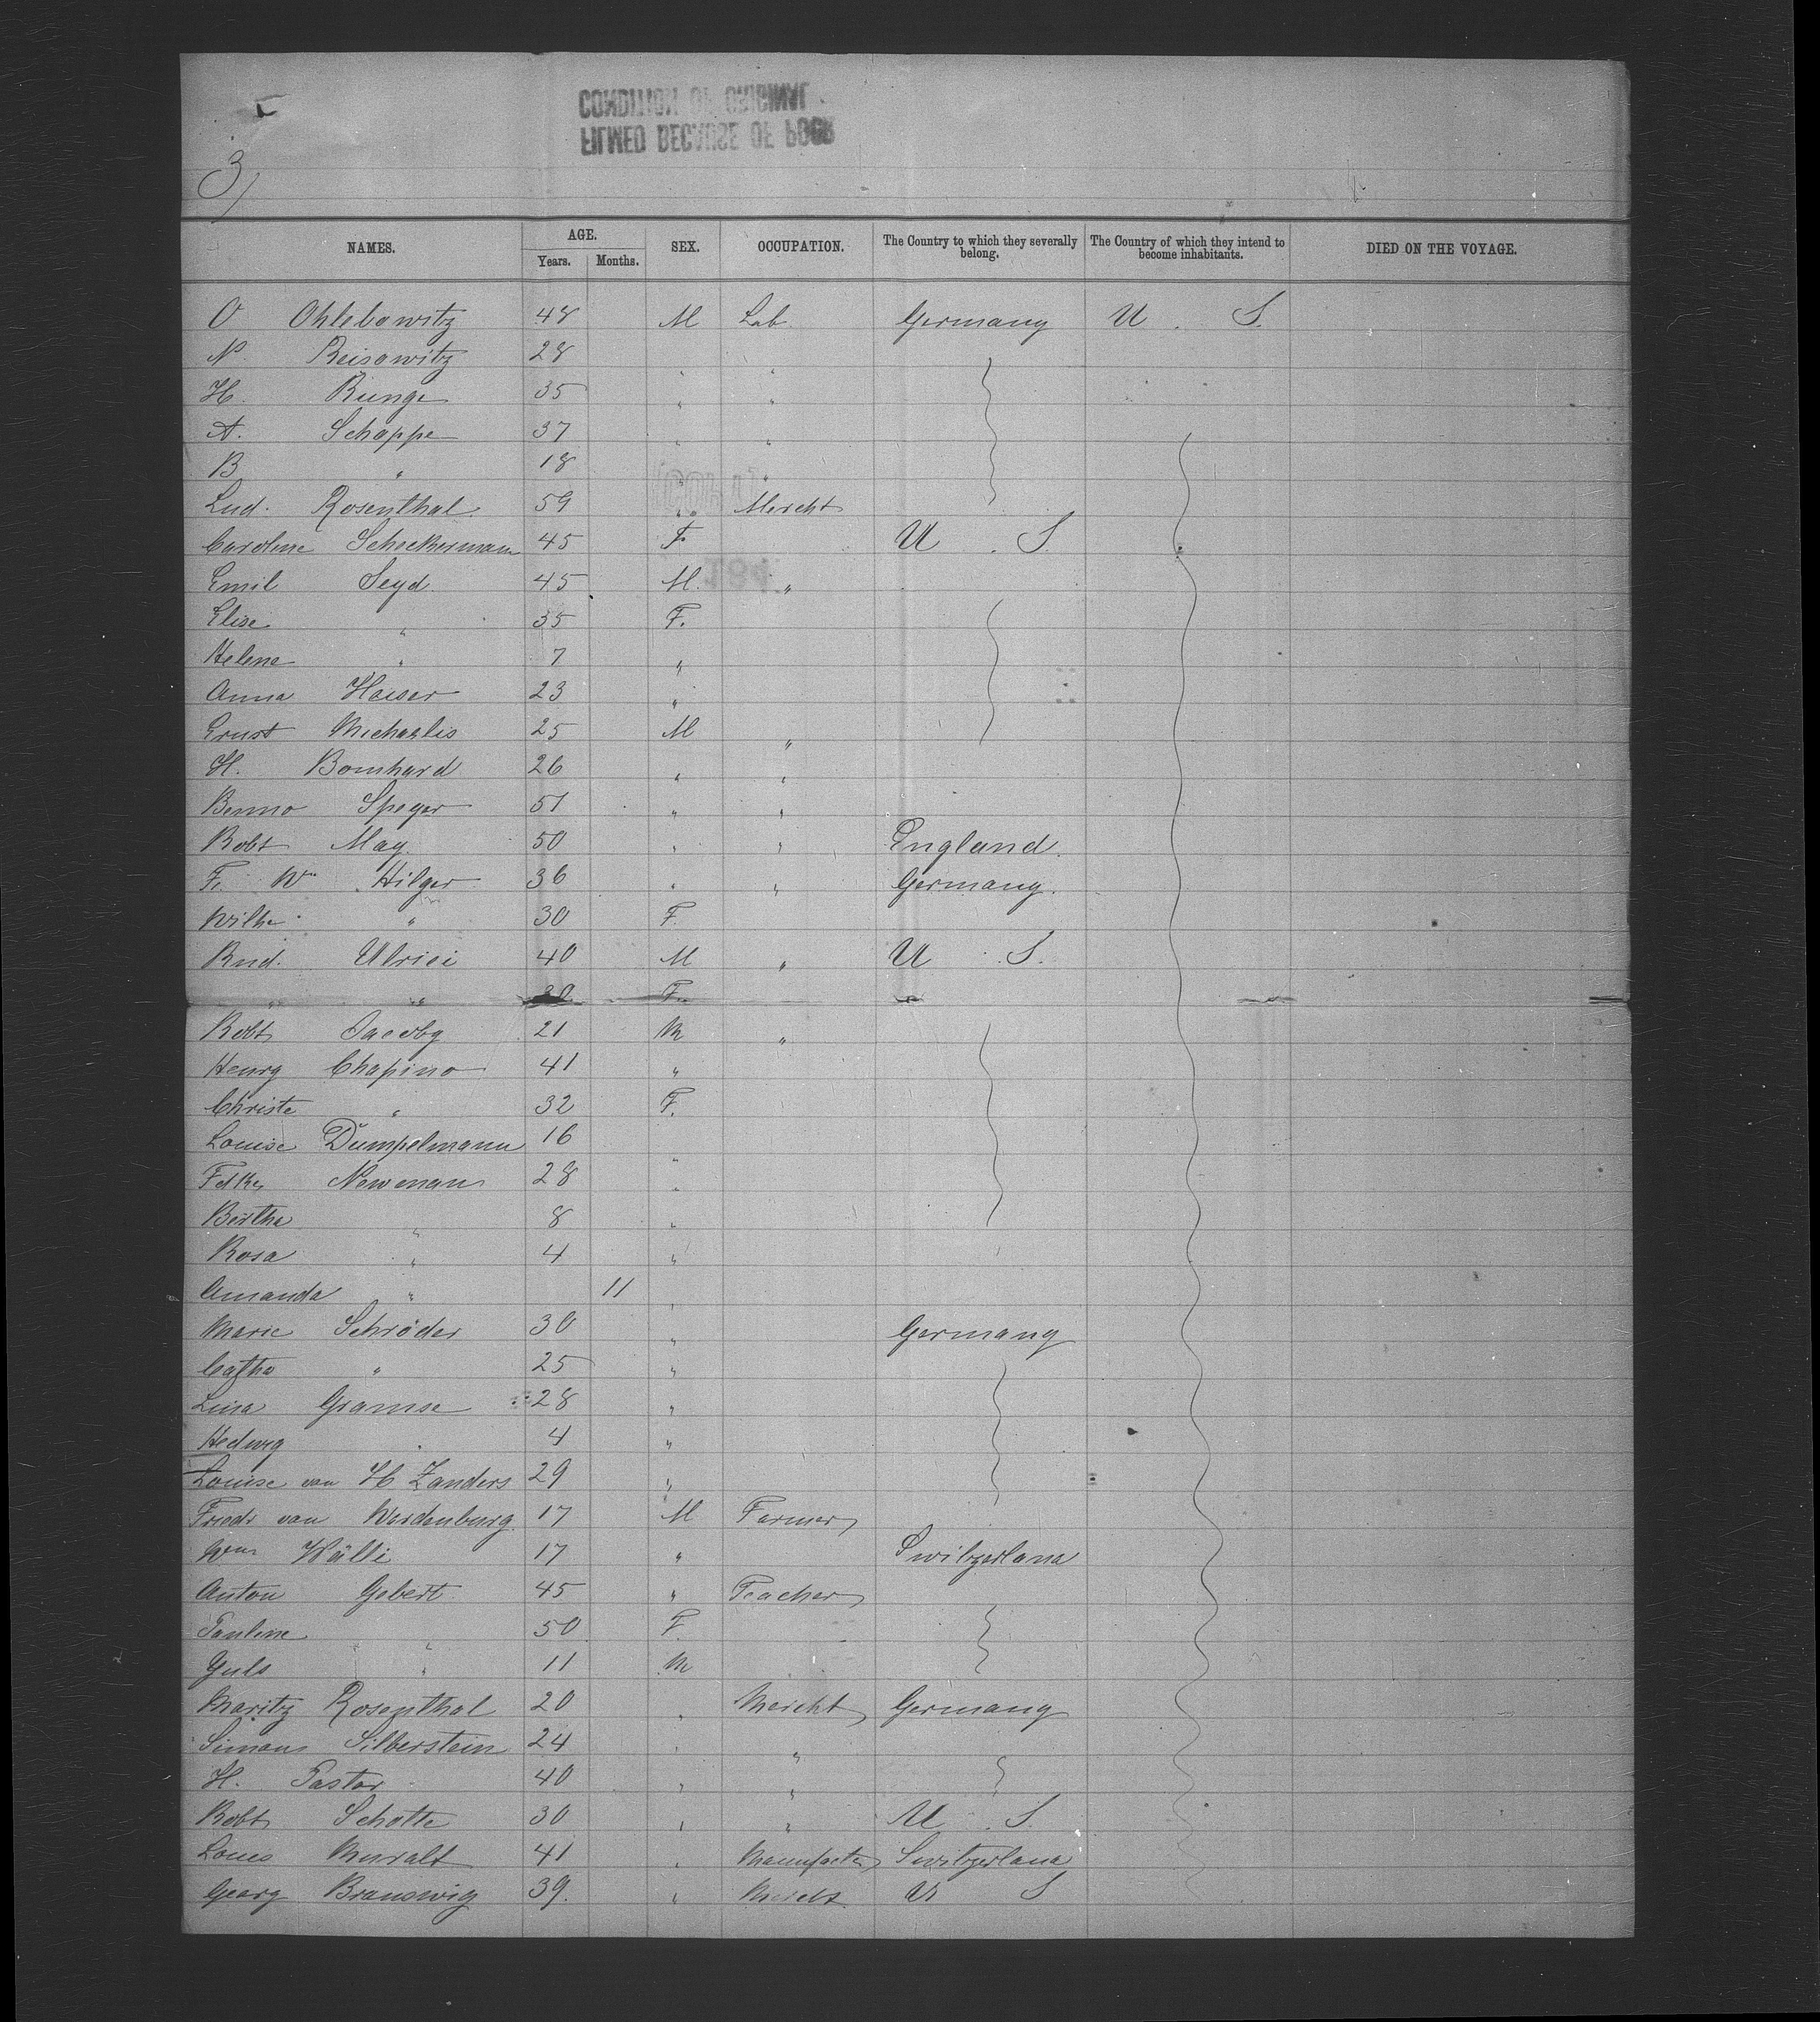 CONDITION OF ORIGINAL
FILMED BECAUSE OF POOR
3)
NAMES. AGE. SEX. OCCUPATION. The Country to which they severally belong. The Country of which they intend to become inhabitants. DIED ON THE VOYAGE.
Years. Months.
O Ohlebowitz 48 M Lab. Germany U. S.
N. Reisowitz 28 " "
H. Runge 35 " "
A. Schappe 37 " "
B " 18 " "
Lud. Rosenthal 59 " Mercht
Caroline Scheckermann 45 F U. S.
Emil Seyd 45 M. "
Elise " 35 F.
Helene " 7 "
Anna Haeser 23 "
Ernst Michaelis 25 M "
H. Bomhard 26 " "
Benno Speyer 51 " "
Robt May 50 " " England.
F. Wm Hilger 36 " " Germany.
Wilhe " 30 F.
Rud. Ulrici 40 M " U. S.
" " 30 F.
Robt Jacoby 21 M "
Henry Chapino 41 "
Christe " 32 F.
Louise Dümpelmann 16 "
Fdke Newman 28 "
Bertha " 8 "
Rosa " 4 "
Amanda " 11 "
Marie Schröder 30 " Germany
Catha " 25 "
Lina Gramse 28 "
Hedwig " 4 "
Louise van H Zanders 29 "
Friedr van Werdenburg 17 M Farmer
Wm Wälli 17 " Switzerland
Anton Gebert 45 " Teacher
Pauline " 50 F.
Juls " 11 M
Moritz Rosenthal 20 " Mercht Germany
Simon Silberstein 24 " "
H. Pastor 40 " "
Robt Schotte 30 " " U. S.
Loues Muralt 41 " Manufactr Switzerland
Georg Branswig 39. " Mercht U S